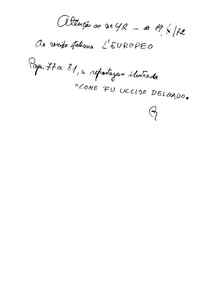 Atenção ao nº 42 - de 19/X/72
da revista italiana L'EUROPEO
Pags. 77 a 81, a reportagem ilustrada
"COME FU UCCISO DELGADO"